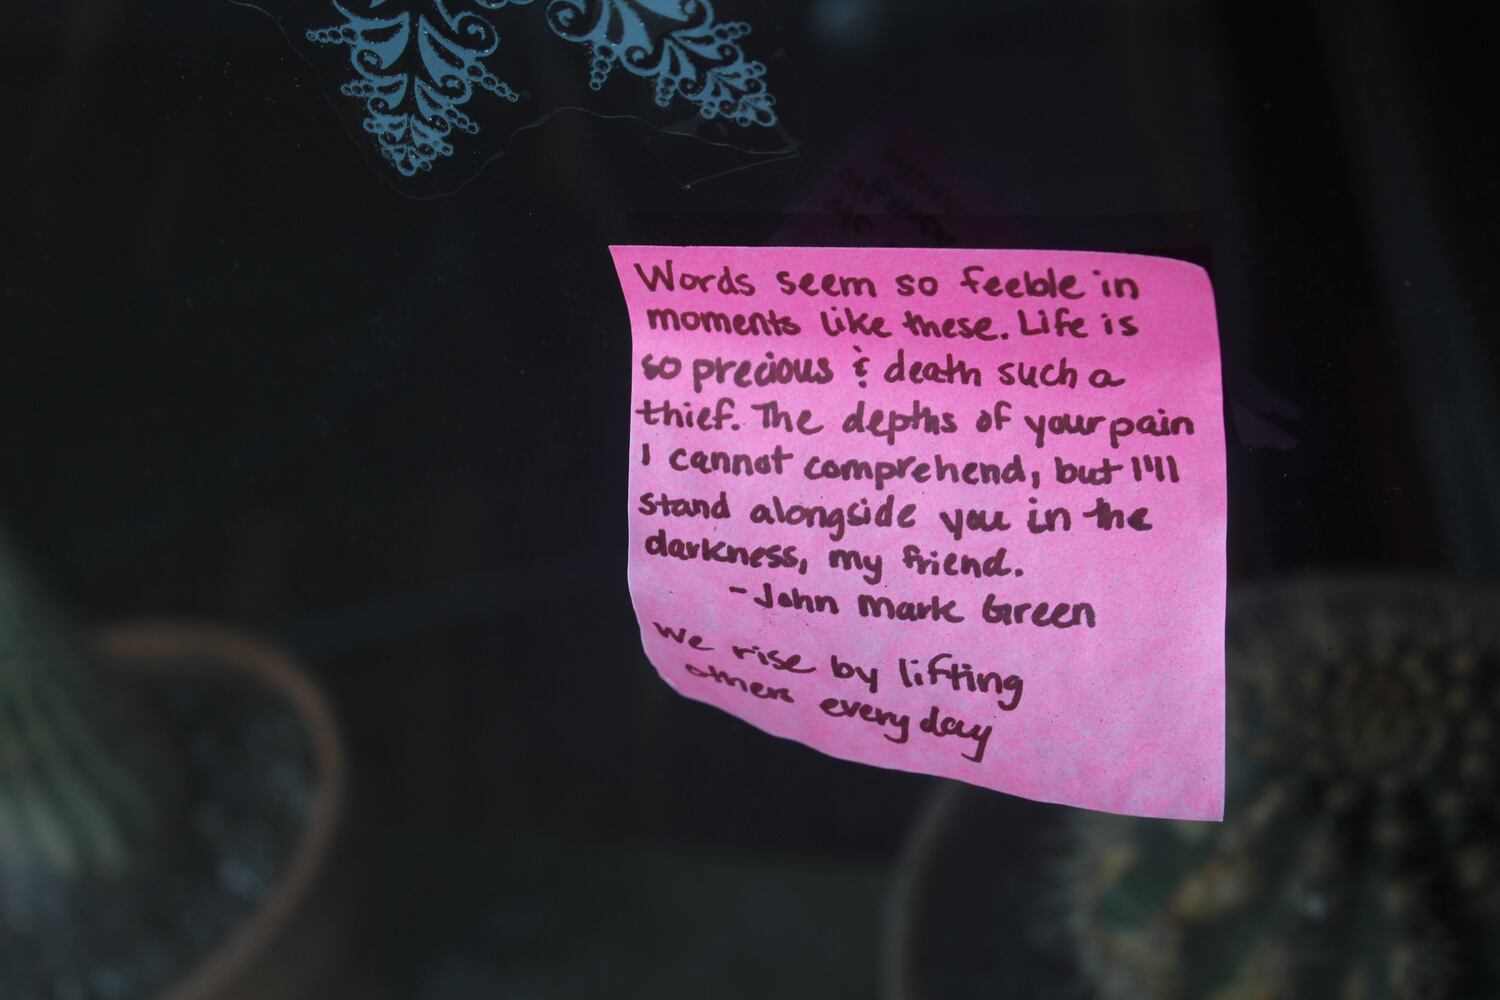 Words seem so feeble in
moments like these. Life is
so precious & death such a
thief. The depths of your pain
I cannot comprehend, but I'll
stand alongside you in the
darkness, my friend.
- John Mark Green
We rise by lifting
others every day